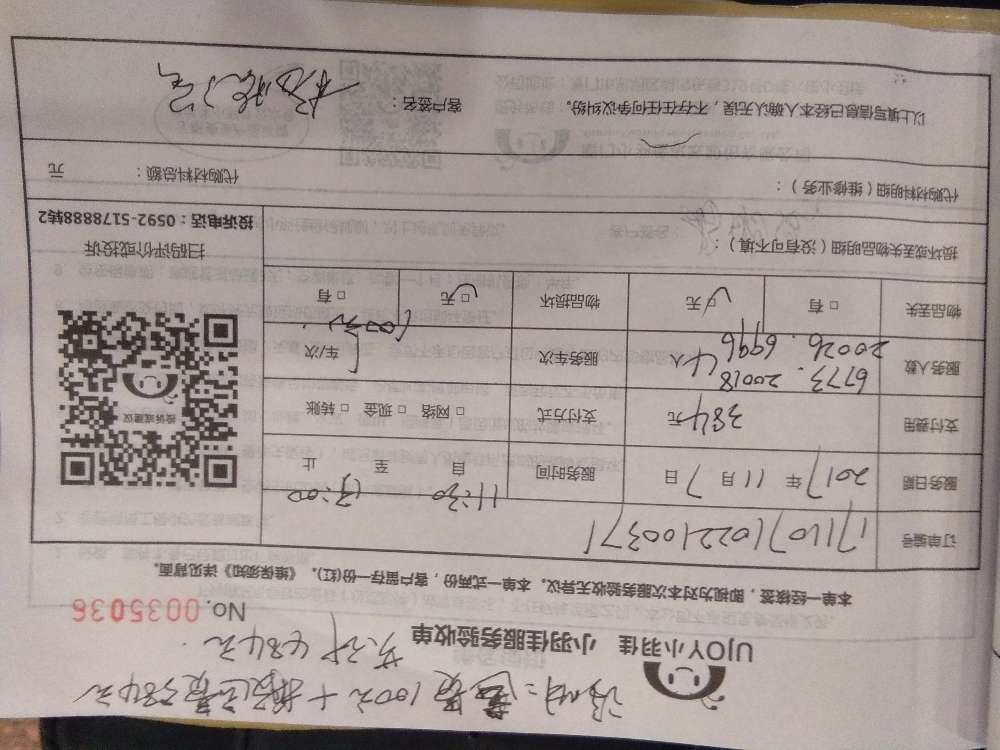 说明：
100元＋
384元
共计484元
UJOY小羽佳 小羽佳服务验收单
No. 0035036
本单一经核签，即视为对本次服务验收无异议。本单一式两份，客户留存一份(红)。《维保须知》详见背面。
订单编号 171107102210037
服务日期 2017年 11月 7日 服务时间 11:30 自 至 13:00 止
支付费用 384元 支付方式 □ 网络 □ 现金 □ 转账
服务人数 6773. 20018 20026. 6996 4人 服务车次 1 车/次 100元
物品丢失 □ 有 □ 无 物品损坏 □ 无 □ 有
投诉或建议
扫码评价或投诉
投诉电话：0592-5178888转2
损坏或丢失物品明细（没有可不填）：
代购材料明细（维修业务）： 代购材料总额： 元
以上填写信息已经本人确认无误，不存在任何争议纠纷。 客户签名：